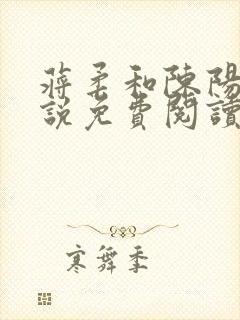 蔣柔和陳陽
說免費閱讀
寒舞季